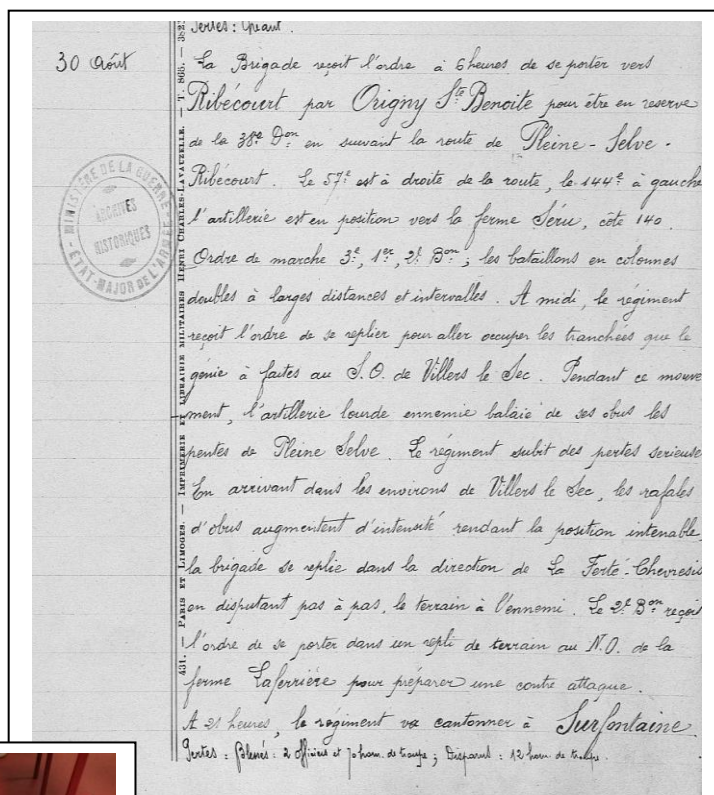 Pertes : Néant.
30 Août
La Brigade reçoit l'ordre à 6 heures de se porter vers
Ribécourt par Origny Ste Benoite pour être en reserve
de la 38e Don en suivant la route de Pleine-Selve-
Ribécourt. Le 57e est à droite de la route, le 144e à gauche
l'artillerie est en position vers la ferme Séru, côte 140.
Ordre de marche 3e, 1er, 2e Bon ; les bataillons en colonnes
doubles à larges distances et intervalles. A midi, le régiment
reçoit l'ordre de se replier pour aller occuper les tranchées que le
génie à faites au S.O. de Villers le Sec. Pendant ce mouve
ment, l'artillerie lourde ennemie balaie de ses obus les
pentes de Pleine Selve. Le régiment subit des pertes serieuse
En arrivant dans les environs de Villers le Sec, les rafales
d'obus augmentent d'intensité rendant la position intenable,
la brigade se replie dans la direction de La Ferté-Chevresis
en disputant pas à pas, le terrain à l'ennemi. Le 2e Bon reçoit
l'ordre de se porter dans un repli de terrain au N.O. de la
ferme Laferrière pour préparer une contre attaque.
A 21 heures, le régiment va cantonner à Surfontaine
Pertes : Blessés : 2 officiers et 70 hom. de troupe ; Disparus : 12 hom. de troupe.
MINISTÈRE DE LA GUERRE
ARCHIVES
HISTORIQUES
ÉTAT-MAJOR DE L'ARMÉE
431. PARIS ET LIMOGES. — IMPRIMERIE ET LIBRAIRIE MILITAIRES HENRI CHARLES-LAVAUZELLE. — T. 865. — 382.